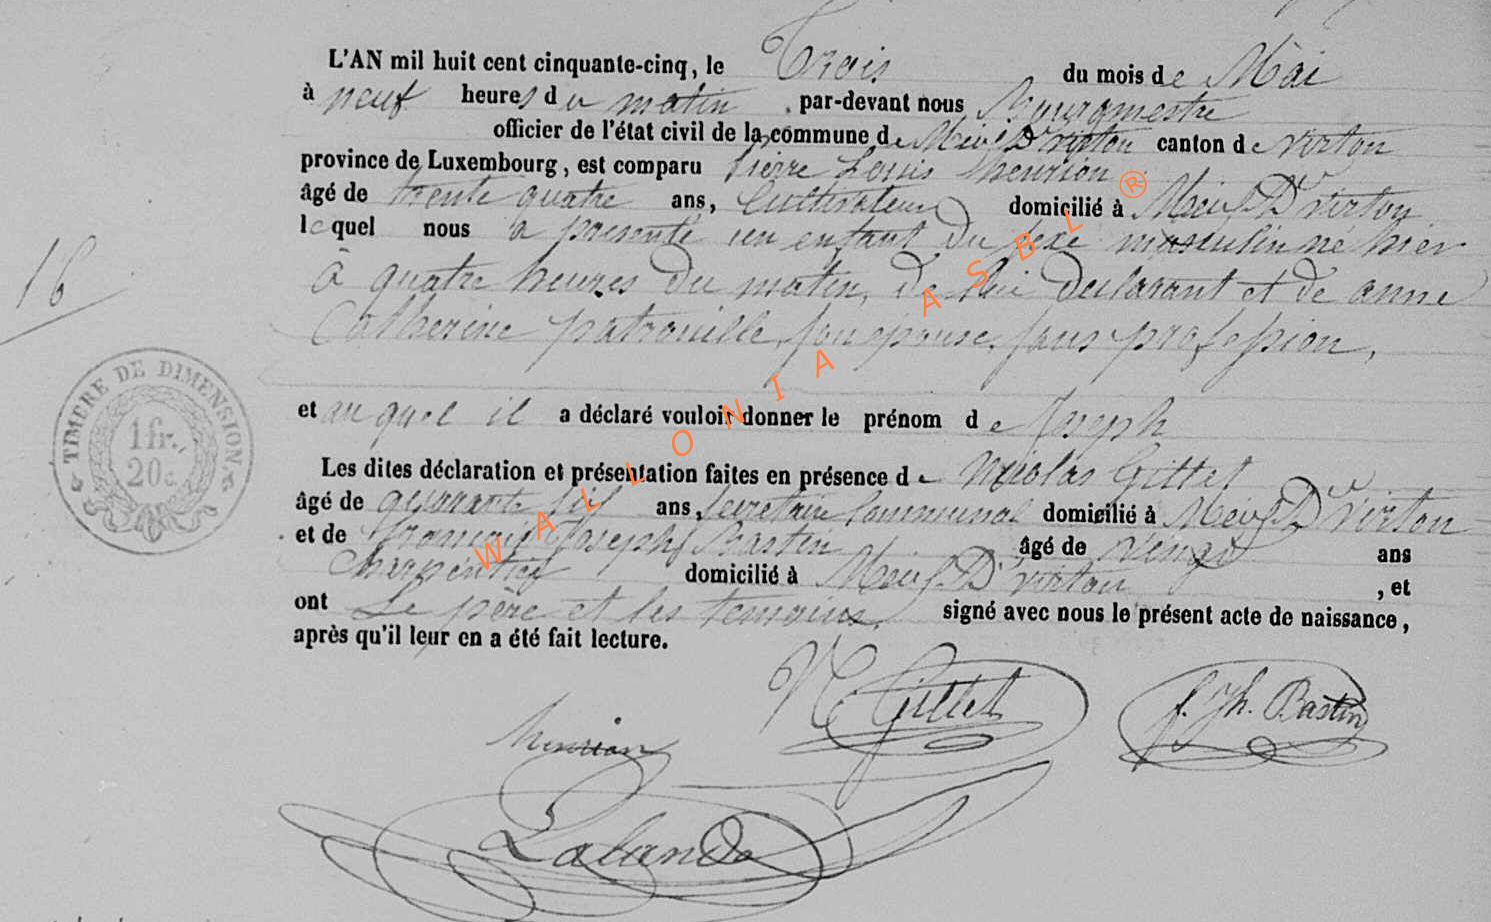 L'AN mil huit cent cinquante-cinq, le Trois du mois de Mai
à neuf heures du matin, par-devant nous Bourgmestre
officier de l'état civil de la commune de Meix Dt virton canton de virton
province de Luxembourg, est comparu Pierre Louis henrion
âgé de trente quatre ans, Cultivateur domicilié à Meix Dt virton
lequel nous a présenté un enfant du sexe masculin né hier
16
à quatre heures du matin, de lui declarant et de anne
Catherine patrouille, son epouse, sans profession,
et auquel il a déclaré vouloir donner le prénom de Joseph
TIMBRE DE DIMENSION.
1 fr.
20 c.
Les dites déclaration et présentation faites en présence de Nicolas Gillet
âgé de quarante six ans, secretaire Communal domicilié à Meix Dt virton
et de francois Joseph Bastin âgé de vingt ans
Charpentier domicilié à Meix Dt virton, et
ont Le père et les temoins, signé avec nous le présent acte de naissance,
après qu'il leur en a été fait lecture.
N Gillet
f. Jh. Bastin
henrion
Lalande
WALLONIA ASBL ®